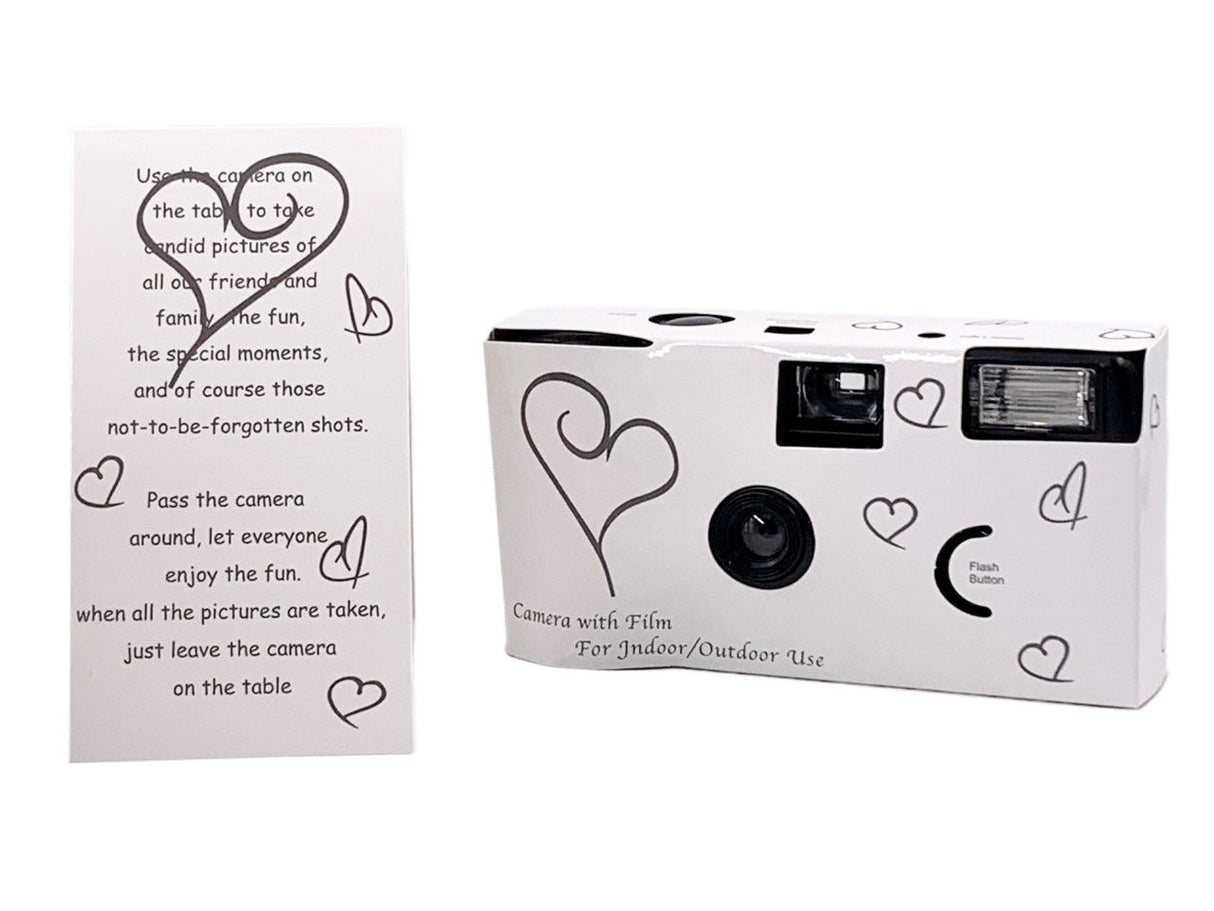 Use the camera on
the table to take
candid pictures of
all our friends and
family, the fun,
the special moments,
and of course those
not-to-be-forgotten shots.
Pass the camera
around, let everyone
enjoy the fun.
when all the pictures are taken,
just leave the camera
on the table
Flash
Button
Camera with Film
For Indoor/Outdoor Use